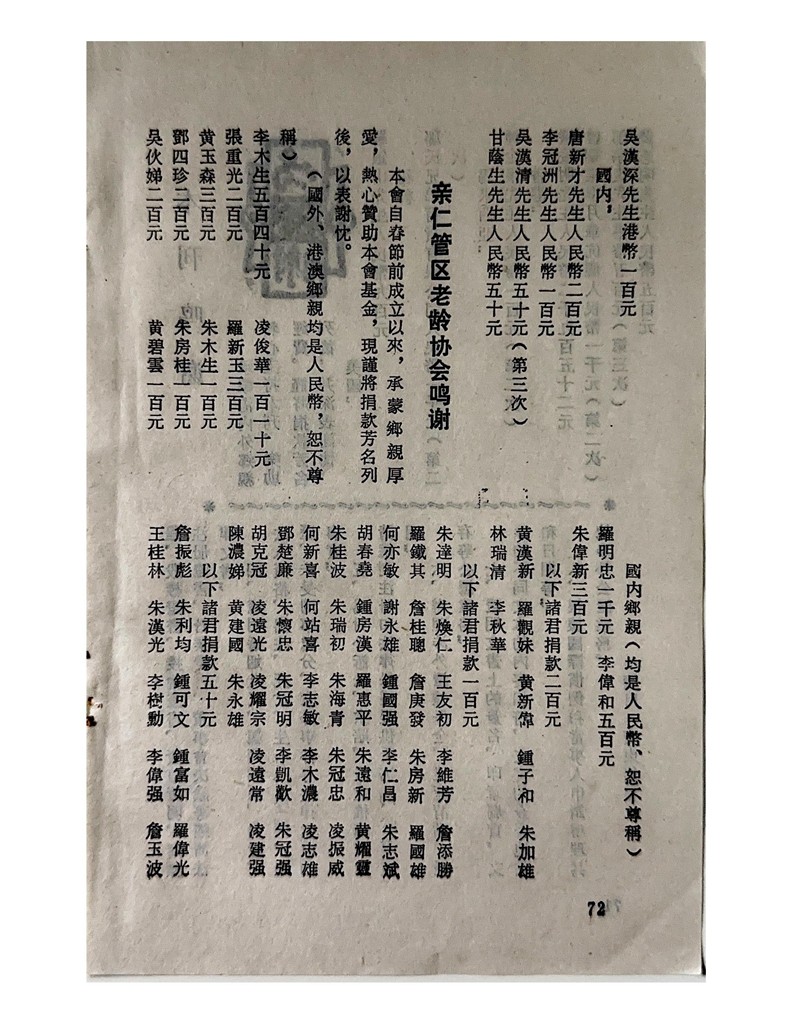 吳漢深先生港幣一百元
國內，
唐新才先生人民幣二百元
李冠洲先生人民幣一百元
吳漢清先生人民幣五十元（第三次）
甘蔭生先生人民幣五十元
亲仁管区老龄协会鸣谢
本會自春節前成立以來，承蒙鄉親厚
愛，熱心贊助本會基金，現謹將捐款芳名列
後，以表謝忱。
（國外、港澳鄉親均是人民幣，恕不尊
稱）
李木生五百四十元 凌俊華一百一十元
張重光二百元 羅新玉三百元
黃玉森三百元 朱木生一百元
鄧四珍二百元 朱房桂一百元
吳伙娣二百元 黃碧雲一百元
國內鄉親（均是人民幣、恕不尊稱）
羅明忠一千元 李偉和五百元
朱偉新三百元
以下諸君捐款二百元
黃漢新 羅觀妹 黃新偉 鍾子和 朱加雄
林瑞清 李秋華
以下諸君捐款一百元
朱達明 朱煥仁 王友初 李維芳 詹添勝
羅鐵其 詹桂聰 詹庚發 朱房新 羅國雄
何亦敏 謝永雄 鍾國强 李仁昌 朱志斌
胡春堯 鍾房漢 羅惠平 朱遠和 黃耀靈
朱桂波 朱瑞初 朱海青 朱冠忠 凌振威
何新喜 何站喜 李志敏 李木濃 凌志雄
鄧楚廉 朱懷忠 朱冠明 李凱歡 朱冠强
胡克冠 凌遠光 凌耀宗 凌遠常 凌建强
陳濃娣 黃建國 朱永雄
以下諸君捐款五十元
詹振彪 朱利均 鍾可文 鍾富如 羅偉光
王桂林 朱漢光 李樹勳 李偉强 詹玉波
72